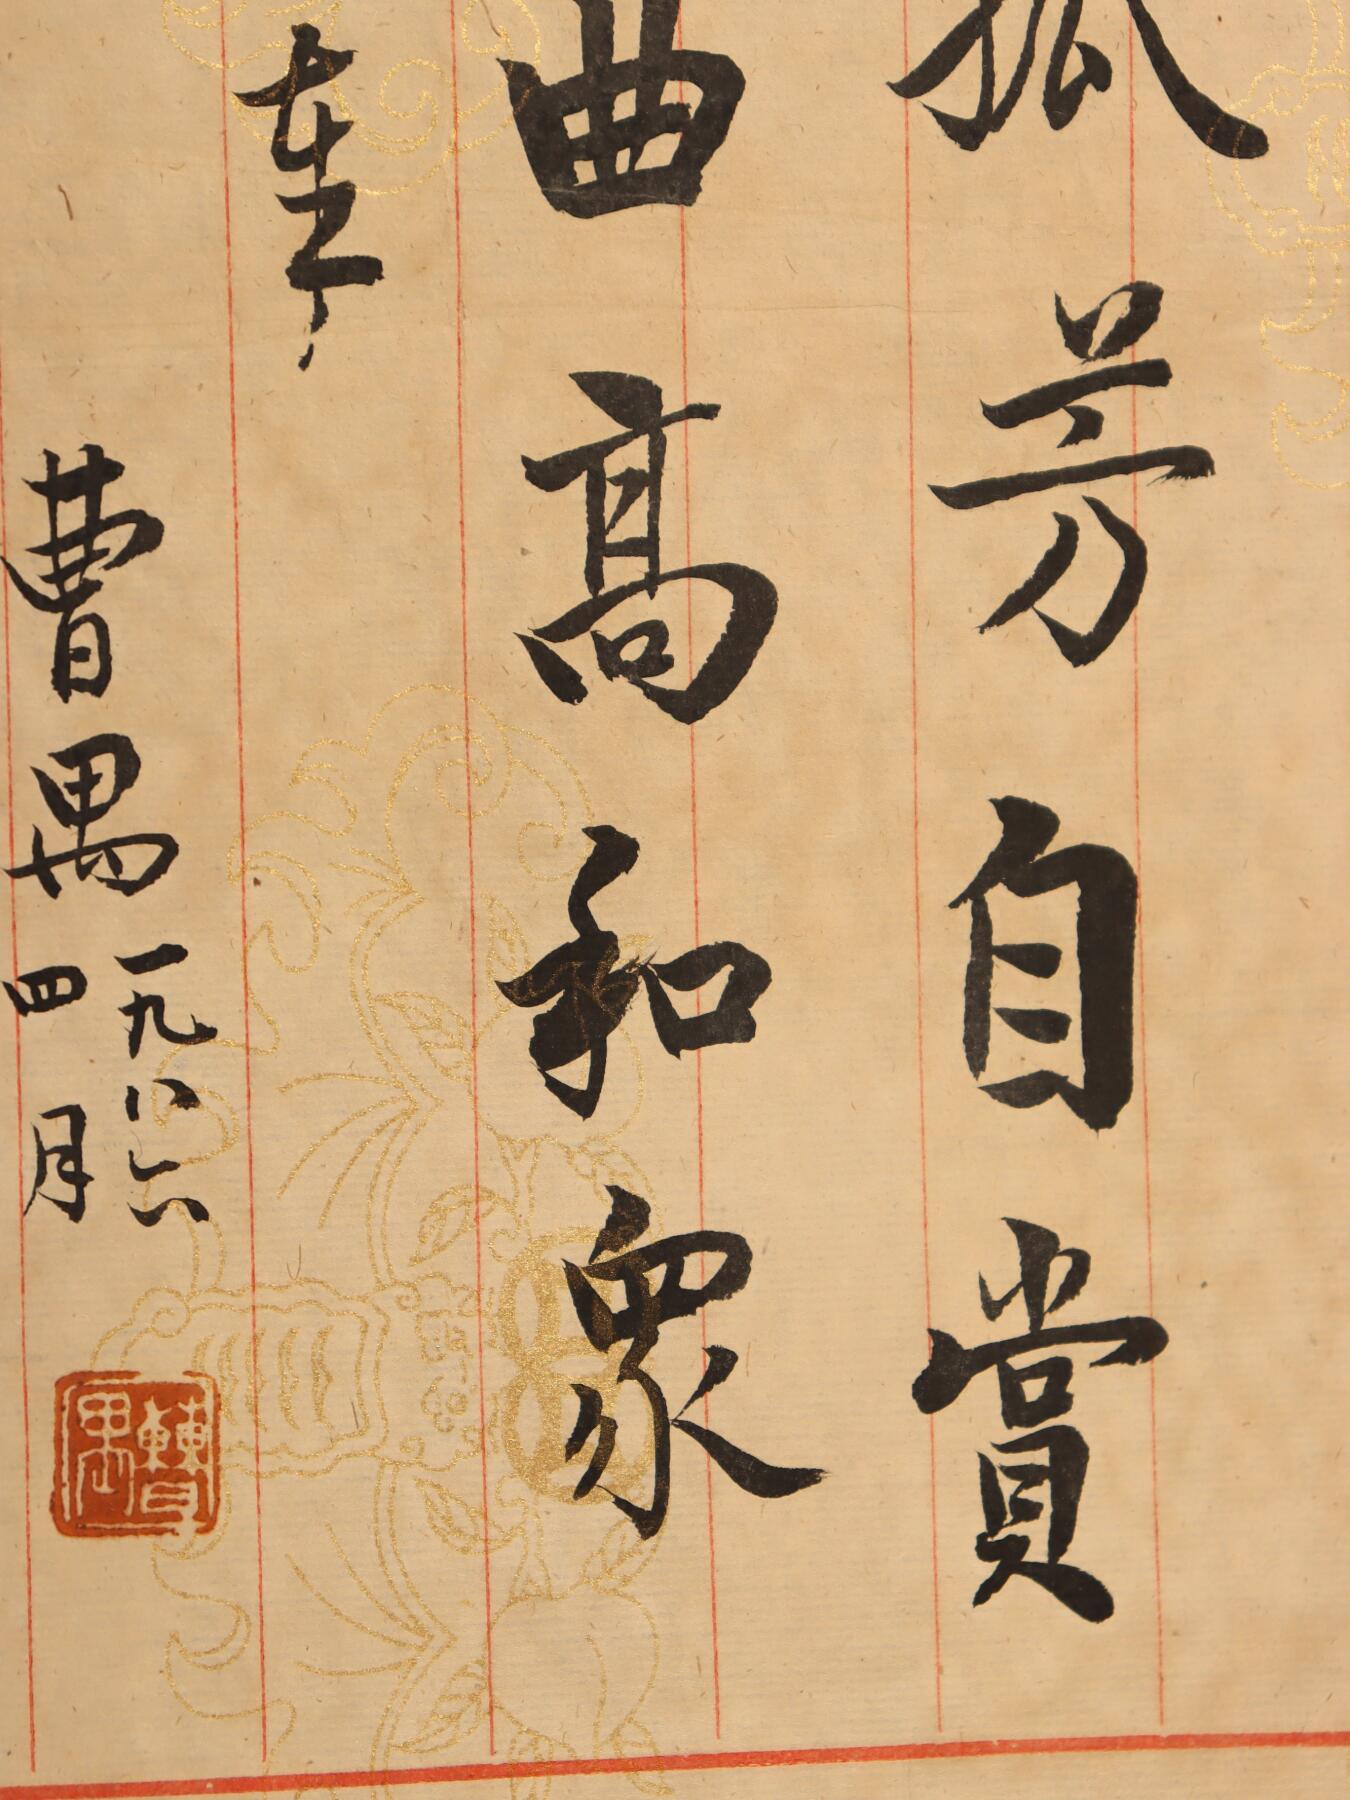 孤芳自賞
曲高和衆
曹禺
一九八六
四月